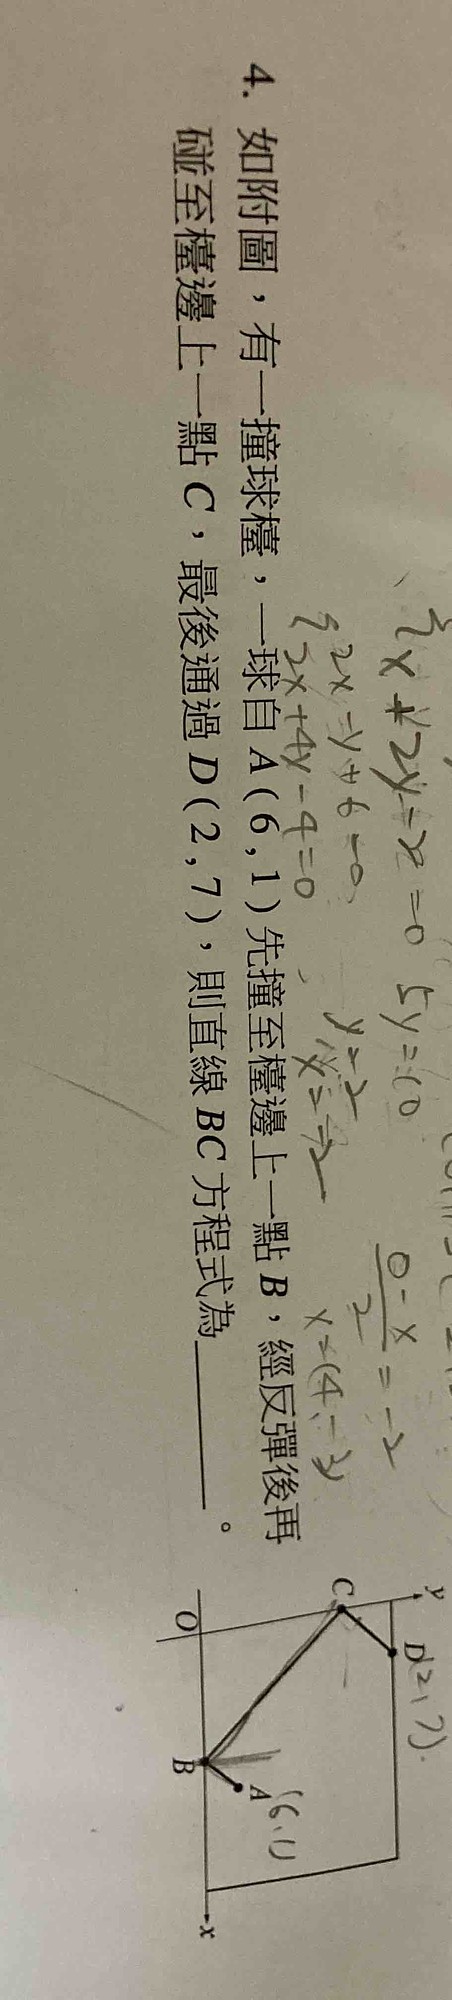 x+2y-2=0 5y=10
2x-y+6=0, y=2
2x+4y-4=0 x=-2
4. 如附圖，有一撞球檯，一球自 A(6,1)先撞至檯邊上一點 B，經反彈後再
碰至檯邊上一點 C，最後通過 D(2,7)，則直線 BC 方程式為＿＿＿＿。
y
D(2,7).
C
A (6,1)
O
B
x